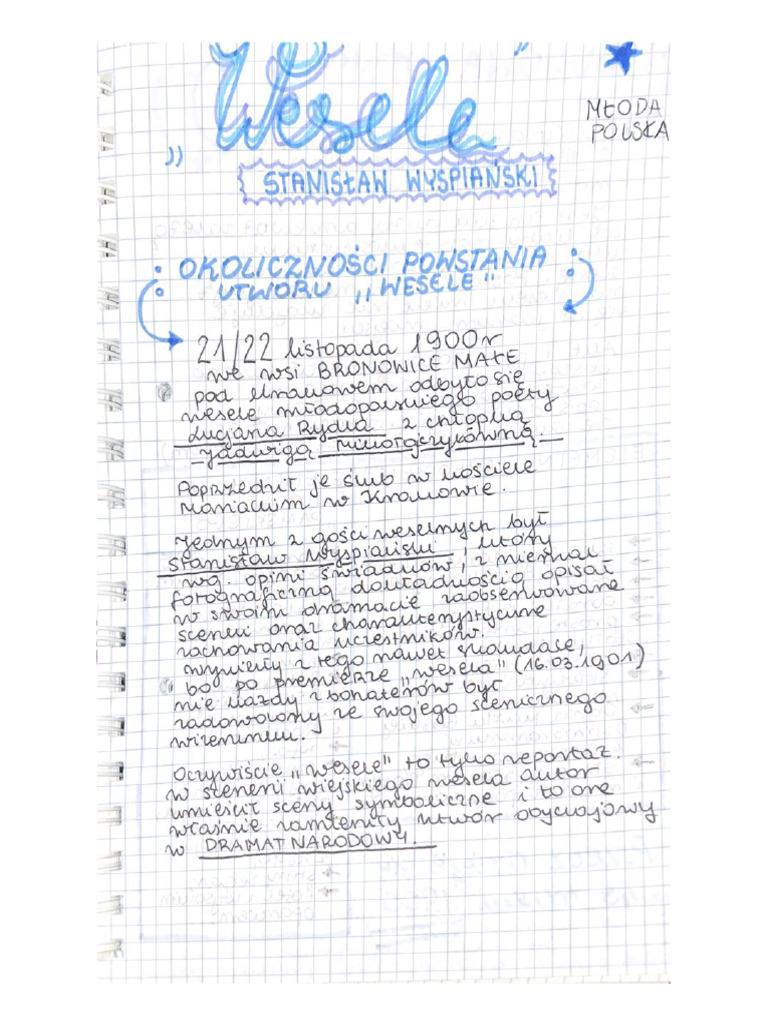 „Wesele”
MŁODA
POLSKA
STANISŁAW WYSPIAŃSKI
OKOLICZNOŚCI POWSTANIA
UTWORU „WESELE"
21/22 listopada 1900r
we wsi BRONOWICE MAŁE
pod Krakowem odbyło się
wesele młodopolskiego poety
Lucjana Rydla z chłopką
Jadwigą Mikołajczykówną.
Poprzedził je ślub w kościele
Mariackim w Krakowie.
Jednym z gości weselnych był
Stanisław Wyspiański, który
wg. opini świadków, z niemal
fotograficzną dokładnością opisał
w swoim dramacie zaobserwowane
scenki oraz charakterystyczne
zachowania uczestników.
wynikły z tego nawet skandale,
bo po premierze „wesela" (16.03.1901)
nie każdy z bohaterów był
zadowolony ze swojego scenicznego
wizerunku.
Oczywiście „wesele" to tylko reportaż.
w scenerii wiejskiego wesela autor
umieścił sceny symboliczne i to one
właśnie zamieniły utwór obyczajowy
w DRAMAT NARODOWY.